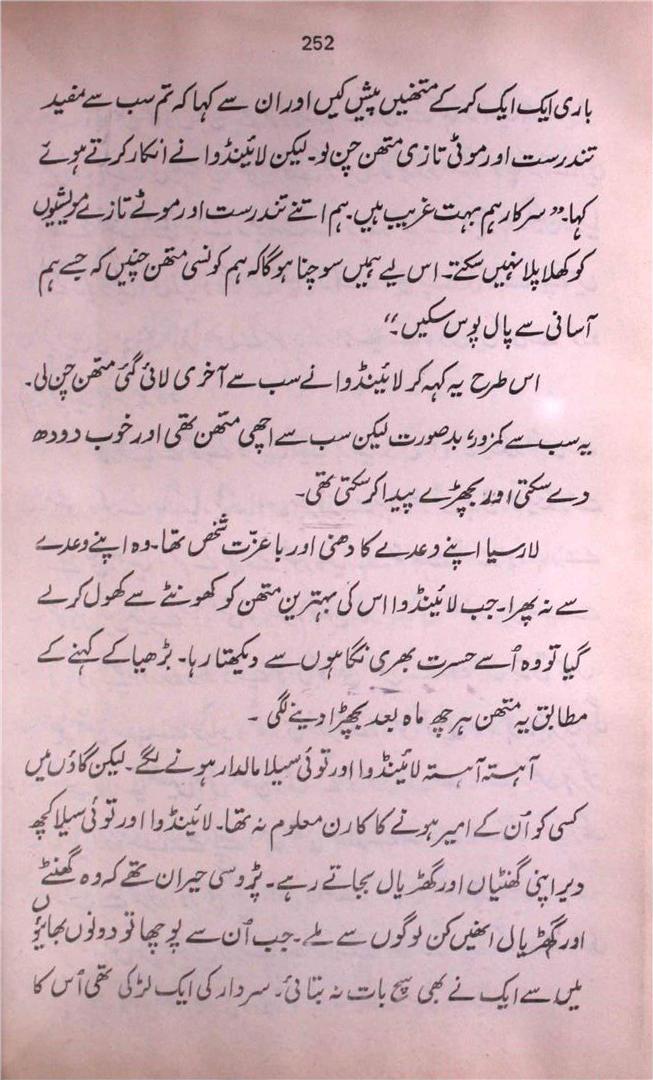 252
باری ایک ایک کرکے متھنیں پیش کیں اور ان سے کہا کہ تم سب سے مفید
تندرست اور موٹی تازی متھن چن لو۔ لیکن لائینڈوا نے انکار کرتے ہوئے
کہا۔ ”سرکار ہم بہت غریب ہیں۔ ہم اتنے تندرست اور موٹے تازے مویشیوں
کو کھلا پلا نہیں سکتے۔ اس لیے ہمیں سوچنا ہوگا کہ ہم کونسی متھن چنیں کہ جسے ہم
آسانی سے پال پوس سکیں۔“
اس طرح یہ کہہ کر لائینڈوا نے سب سے آخری لائی گئی متھن چن لی۔
یہ سب سے کمزور، بدصورت لیکن سب سے اچھی متھن تھی اور خوب دودھ
دے سکتی اور بچھڑے پیدا کرسکتی تھی۔
لارسیا اپنے وعدے کا دھنی اور باعزّت شخص تھا۔ وہ اپنے وعدے
سے نہ پھرا۔ جب لائینڈوا اس کی بہترین متھن کو کھونٹے سے کھول کر لے
گیا تو وہ اُسے حسرت بھری نگاہوں سے دیکھتا رہا۔ بڑھیا کے کہنے کے
مطابق یہ متھن ہر چھ ماہ بعد بچھڑا دینے لگی ۔
آہستہ آہستہ لائینڈوا اور توئی سیلا مالدار ہونے لگے۔ لیکن گاؤں میں
کسی کو اُن کے امیر ہونے کا کارن معلوم نہ تھا۔ لائینڈوا اور توئی سیلا کچھ
دیر اپنی گھنٹیاں اور گھڑیال بجاتے رہے۔ پڑوسی حیران تھے کہ وہ گھنٹے
اور گھڑیال انھیں کن لوگوں سے ملے۔ جب اُن سے پوچھا تو دونوں بھائیوں
میں سے ایک نے بھی سچ بات نہ بتائی۔ سردار کی ایک لڑکی تھی اُس کا